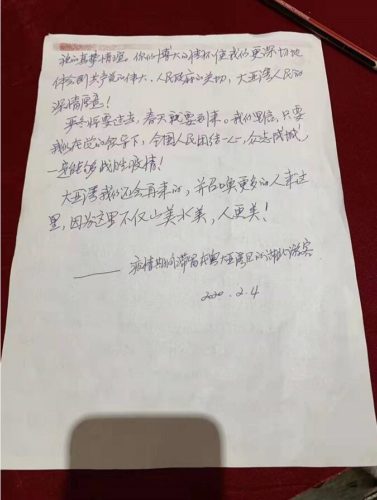 的真挚情谊。你们博大的情怀使我们更深切地
体会到共产党的伟大、人民政府的关切,大亚湾人民的
深情厚意!
严冬将要过去,春天就要到来。我们坚信,只要
我们在党的领导下,全国人民团结一心,众志成城,
一定能够战胜疫情!
大亚湾我们还会再来的,并召唤更多的人来这
里,因为这里不仅山美水美,人更美!
——疫情期间滞留在粤大亚湾区的湖北游客
2020.2.4